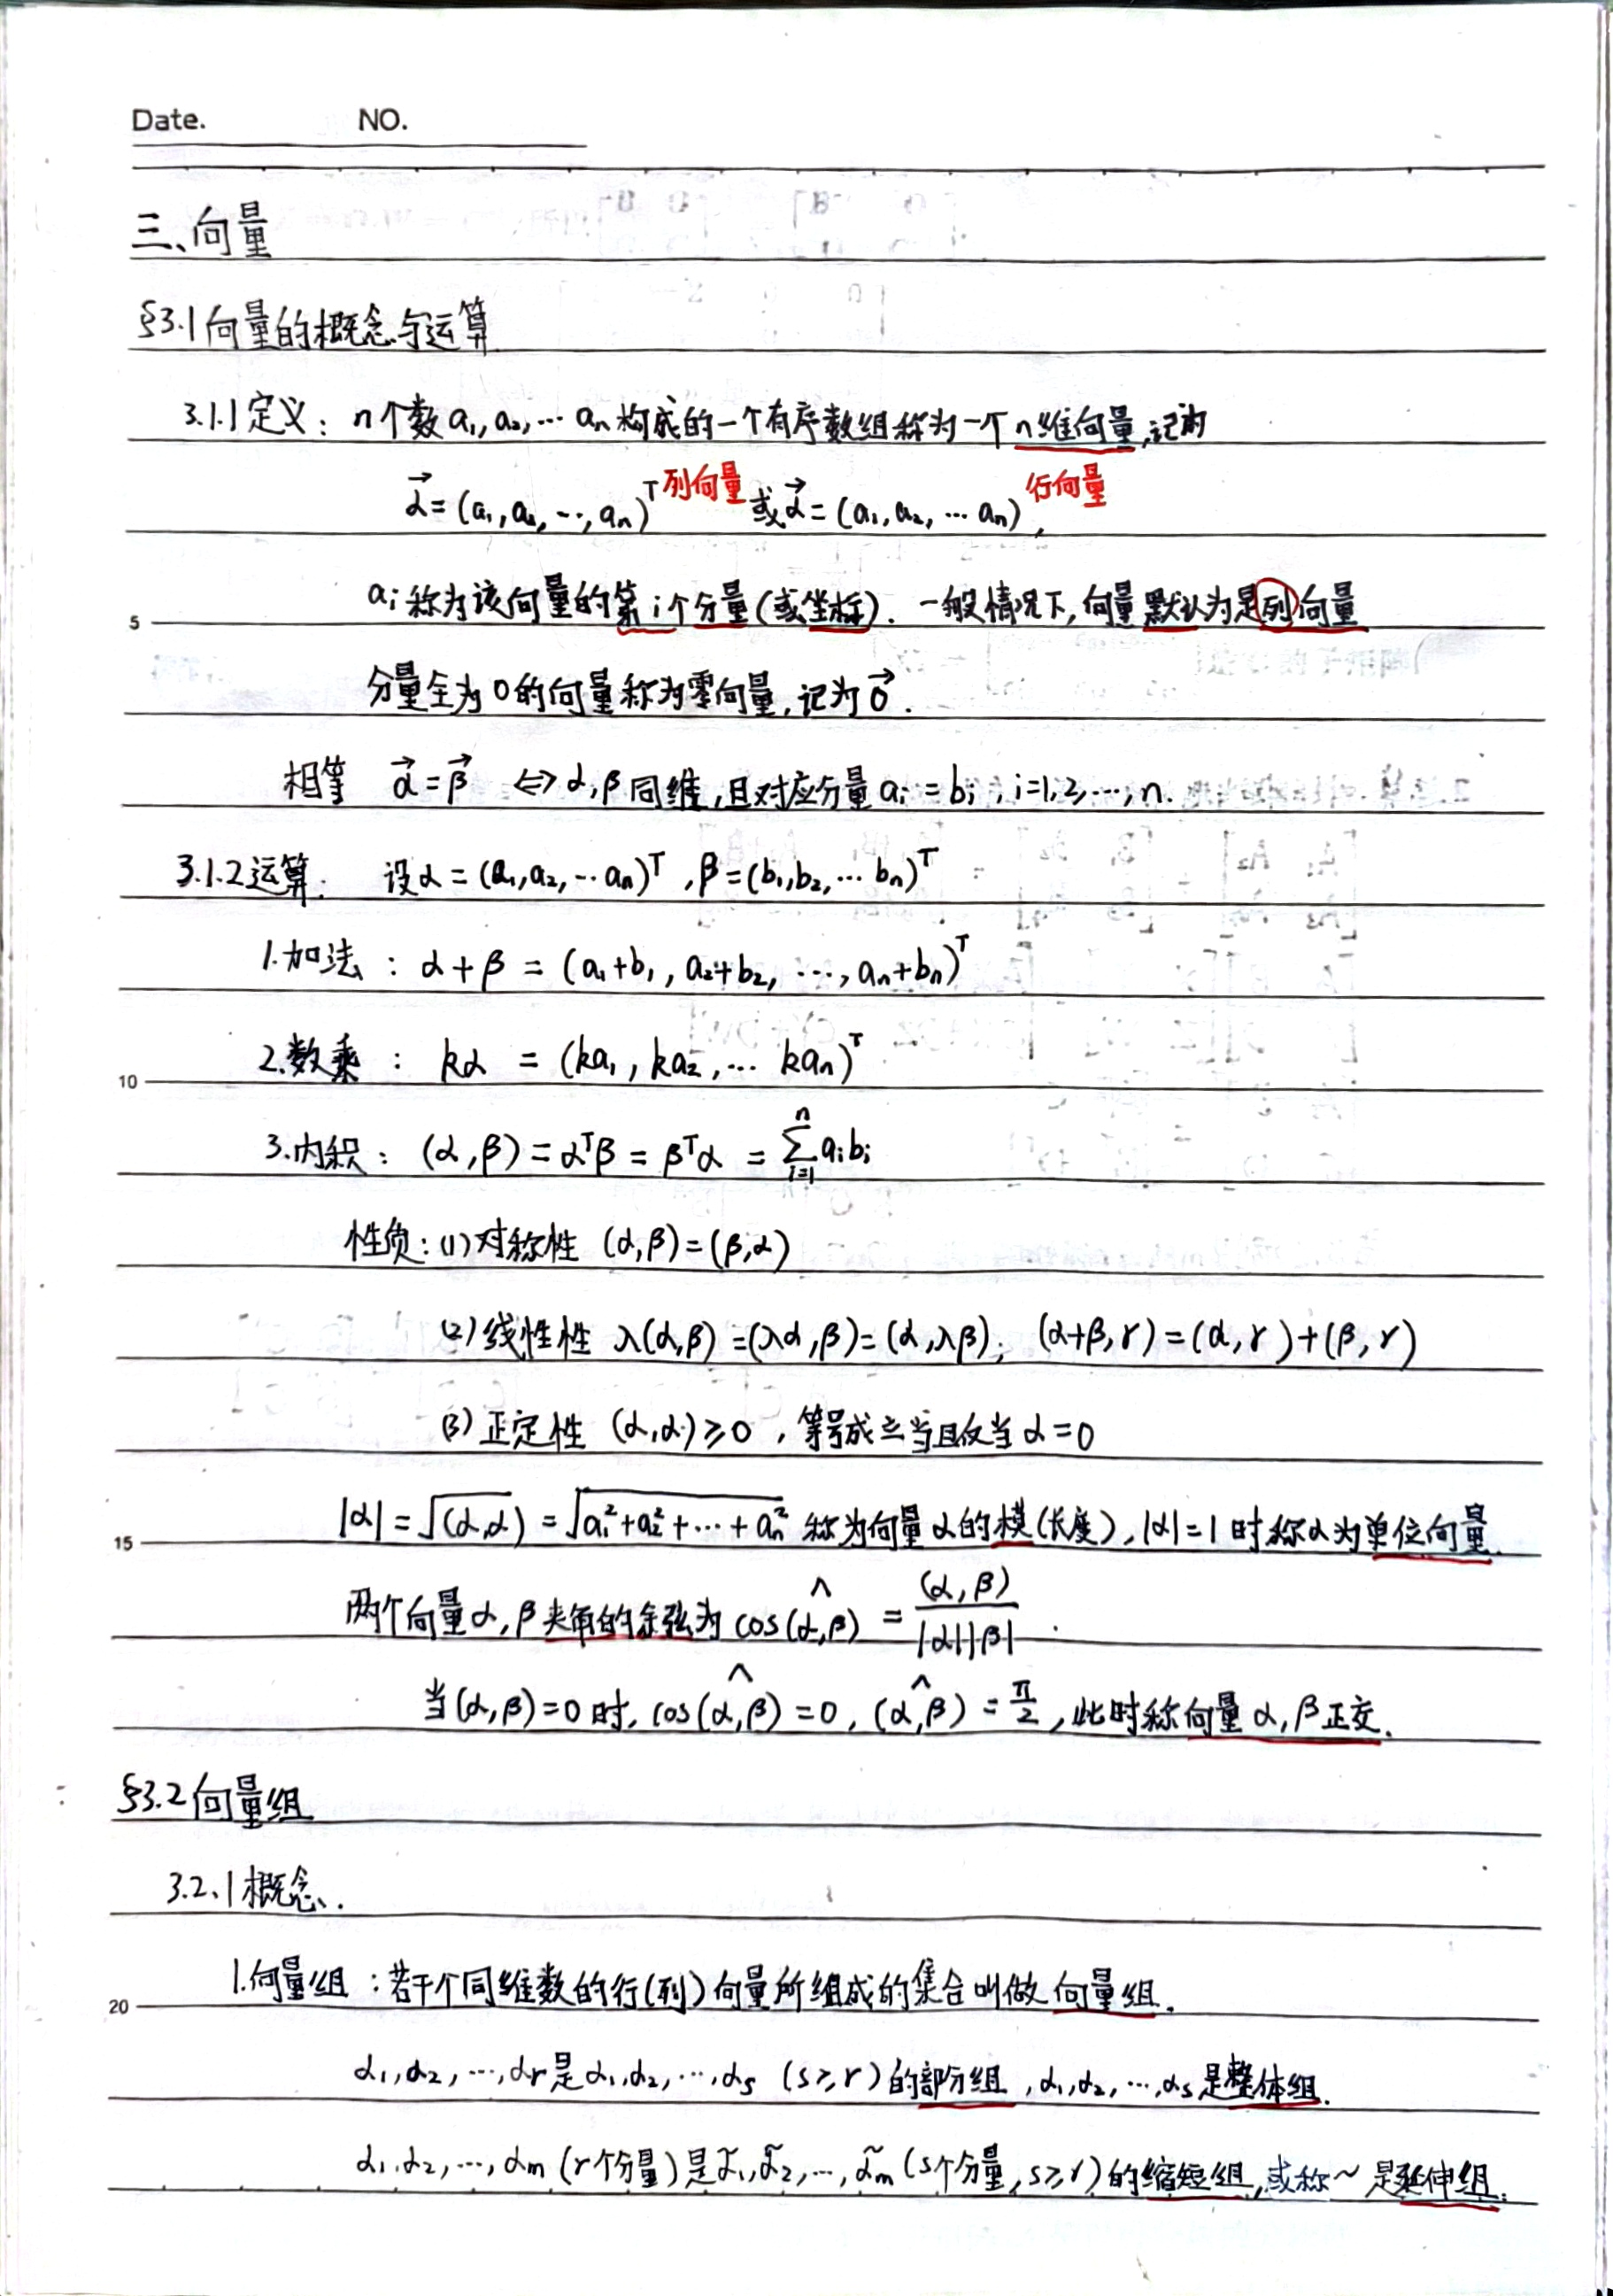 Date. NO.
三、向量
§3.1 向量的概念与运算
3.1.1 定义：n个数 a₁, a₂, … aₙ 构成的一个有序数组称为一个n维向量，记为
α⃗ = (a₁, a₂, …, aₙ)ᵀ 列向量 或 α⃗ = (a₁, a₂, … aₙ) 行向量,
aᵢ 称为该向量的第i个分量(或坐标). 一般情况下, 向量默认为是列向量
5
分量全为0的向量称为零向量, 记为 0⃗.
相等 α⃗ = β⃗ ⇔ α, β 同维, 且对应分量 aᵢ = bᵢ, i=1,2,…,n.
3.1.2 运算. 设 α = (a₁, a₂, … aₙ)ᵀ, β = (b₁, b₂, … bₙ)ᵀ
1.加法：α + β = (a₁+b₁, a₂+b₂, …, aₙ+bₙ)ᵀ
2.数乘：kα = (ka₁, ka₂, … kaₙ)ᵀ
10
3.内积：(α, β) = αᵀβ = βᵀα = ∑ᵢ₌₁ⁿ aᵢbᵢ
性质：(1) 对称性 (α, β) = (β, α)
(2) 线性性 λ(α, β) = (λα, β) = (α, λβ); (α+β, γ) = (α, γ) + (β, γ)
(3) 正定性 (α, α) ≥ 0, 等号成立当且仅当 α = 0
|α| = √(α, α) = √a₁²+a₂²+…+aₙ² 称为向量α的模(长度), |α| = 1 时称α为单位向量.
15
两个向量α, β夹角的余弦为 cos(α,^β) = (α, β)/|α||β|.
当(α, β) = 0 时, cos(α,^β) = 0, (α,^β) = π/2, 此时称向量α, β正交.
§3.2 向量组
3.2.1 概念.
1.向量组：若干个同维数的行(列)向量所组成的集合叫做向量组.
20
α₁, α₂, …, αᵣ 是 α₁, α₂, …, αₛ (s≥r) 的部分组, α₁, α₂, …, αₛ 是整体组.
α₁, α₂, …, αₘ (r个分量) 是 α̃₁, α̃₂, …, α̃ₘ (s个分量, s≥r) 的缩短组, 或称 ~ 是延伸组.